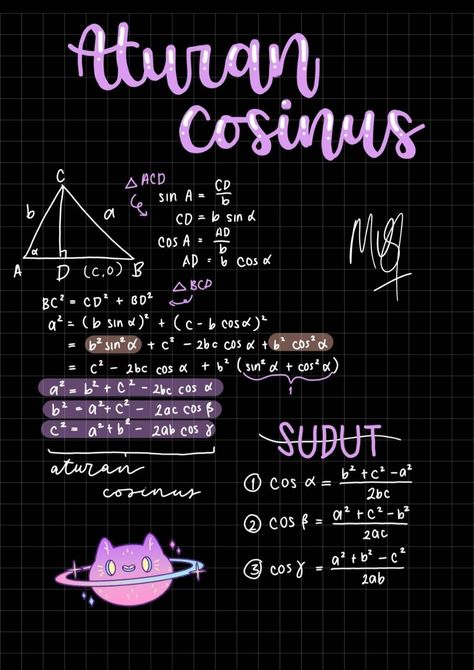 Aturan
Cosinus
△ ACD
sin A = CD/b
CD = b sin α
cos A = AD/b
AD = b cos α
C
b
a
α
A D (c,0) B
△ BCD
BC² = CD² + BD²
a² = (b sin α)² + (c - b cos α)²
= b² sin² α + c² - 2bc cos α + b² cos² α
= c² - 2bc cos α + b² (sin² α + cos² α)
1
a² = b² + c² - 2bc cos α
b² = a² + c² - 2ac cos β
c² = a² + b² - 2ab cos γ
aturan
cosinus
SUDUT
① cos α = b² + c² - a²/2bc
② cos β = a² + c² - b²/2ac
③ cos γ = a² + b² - c²/2ab